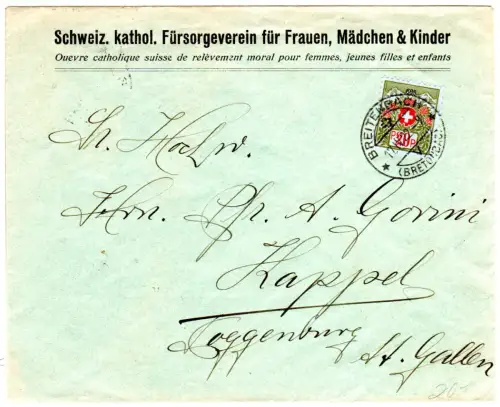 Schweiz. kathol. Fürsorgeverein für Frauen, Mädchen & Kinder
Ouevre catholique suisse de relèvement moral pour femmes, jeunes filles et enfants
BREITENBACH
20
Sr. Hochw.
Hrn. Pfr. A. Gorini
Kappel
Toggenburg
St. Gallen